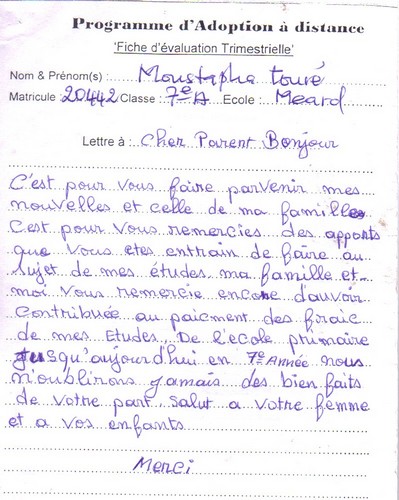 Programme d'Adoption à distance
'Fiche d'évaluation Trimestrielle'
Nom & Prénom(s) : Moustapha touré
Matricule : 20442 Classe : 7e A Ecole : Meard
Lettre à : Cher Parent Bonjour
C'est pour vous faire parvenir mes
nouvelles et celle de ma famille
C'est pour vous remercies des apports
que vous etes entrain de faire au
sujet de mes études ma famille et
moi vous remercie encore d'auvoir
contribuée au paiement des fraic
de mes Etudes. De l'ecole primaire
jusqu'aujourd'hui en 7e Année nous
n'oublirons jamais des bien faits
de votre part salut a votre femme
et a vos enfants
Merci